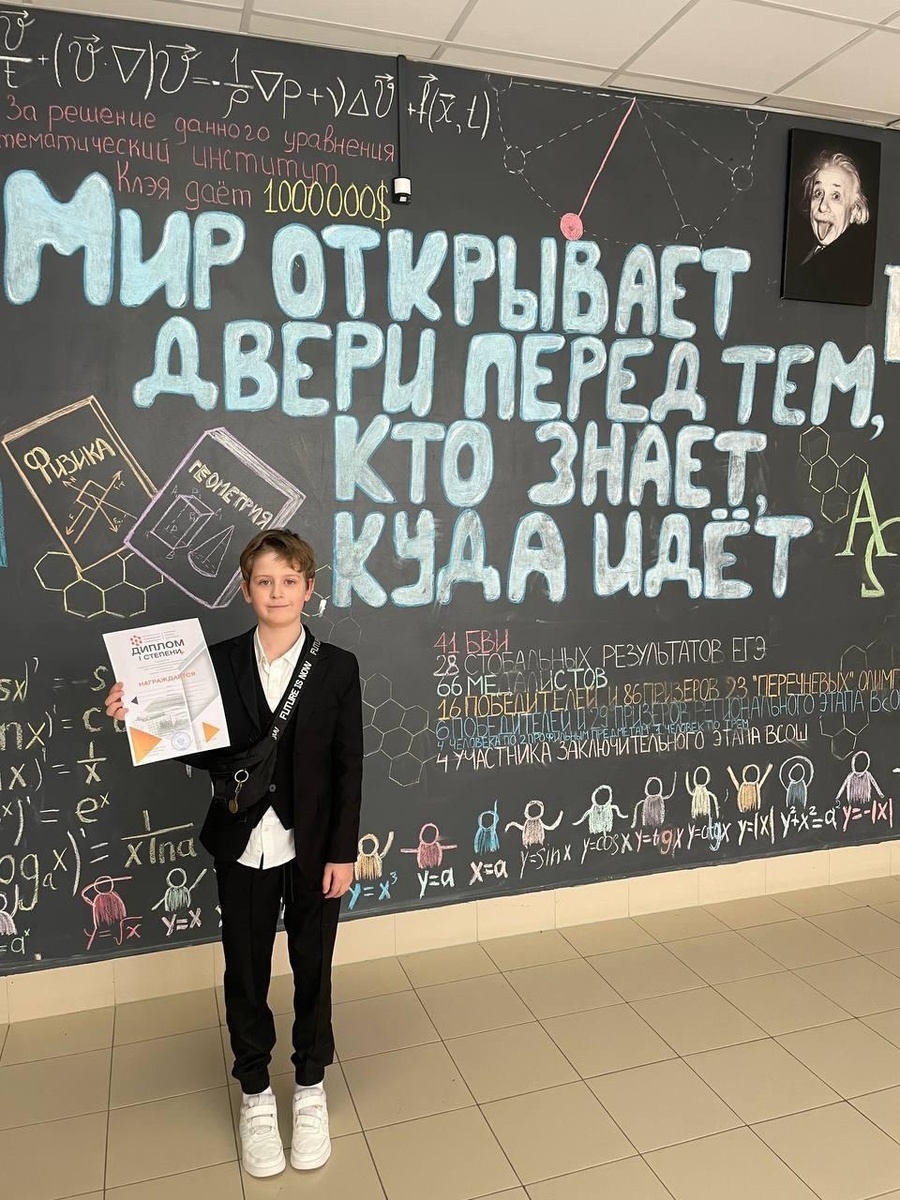 +(v⃗·∇)v⃗=-1/ρ∇p+νΔv⃗+f⃗(x⃗,t)
За решение данного уравнения
институт
Клэя даёт 1000000$
Мир открывает
двери перед тем,
кто знает,
куда идёт
Физика
Геометрия
ДИПЛОМ
I СТЕПЕНИ
НАГРАЖДАЕТСЯ
FUTURE IS NOW
41 БВИ
28 СТОБАЛЬНЫХ РЕЗУЛЬТАТОВ ЕГЭ
66 МЕДАЛИСТОВ
16 ПОБЕДИТЕЛЕЙ И 86 ПРИЗЕРОВ 93 "ПЕРЕЧНЕВЫХ"
6 ПОБЕДИТЕЛЕЙ И ПРИЗЕРОВ РЕГИОНАЛЬНОГО ЭТАПА
4 ЧЕЛОВЕКА ПО 2 ПРОФИЛЬНЫМ ПРЕДМЕТАМ 1 ЧЕЛОВЕК ПО ТРЕМ
4 УЧАСТНИКА ЗАКЛЮЧИТЕЛЬНОГО ЭТАПА ВСОШ
= 1/x
= eˣ
= 1/(x ln a)
y=√x
y=x
y=x³
y=a
x=a
y=sin x
y=cos x
y=tg x
y=ctg x
y=|x|
y²+x²=a²
y=-|x|